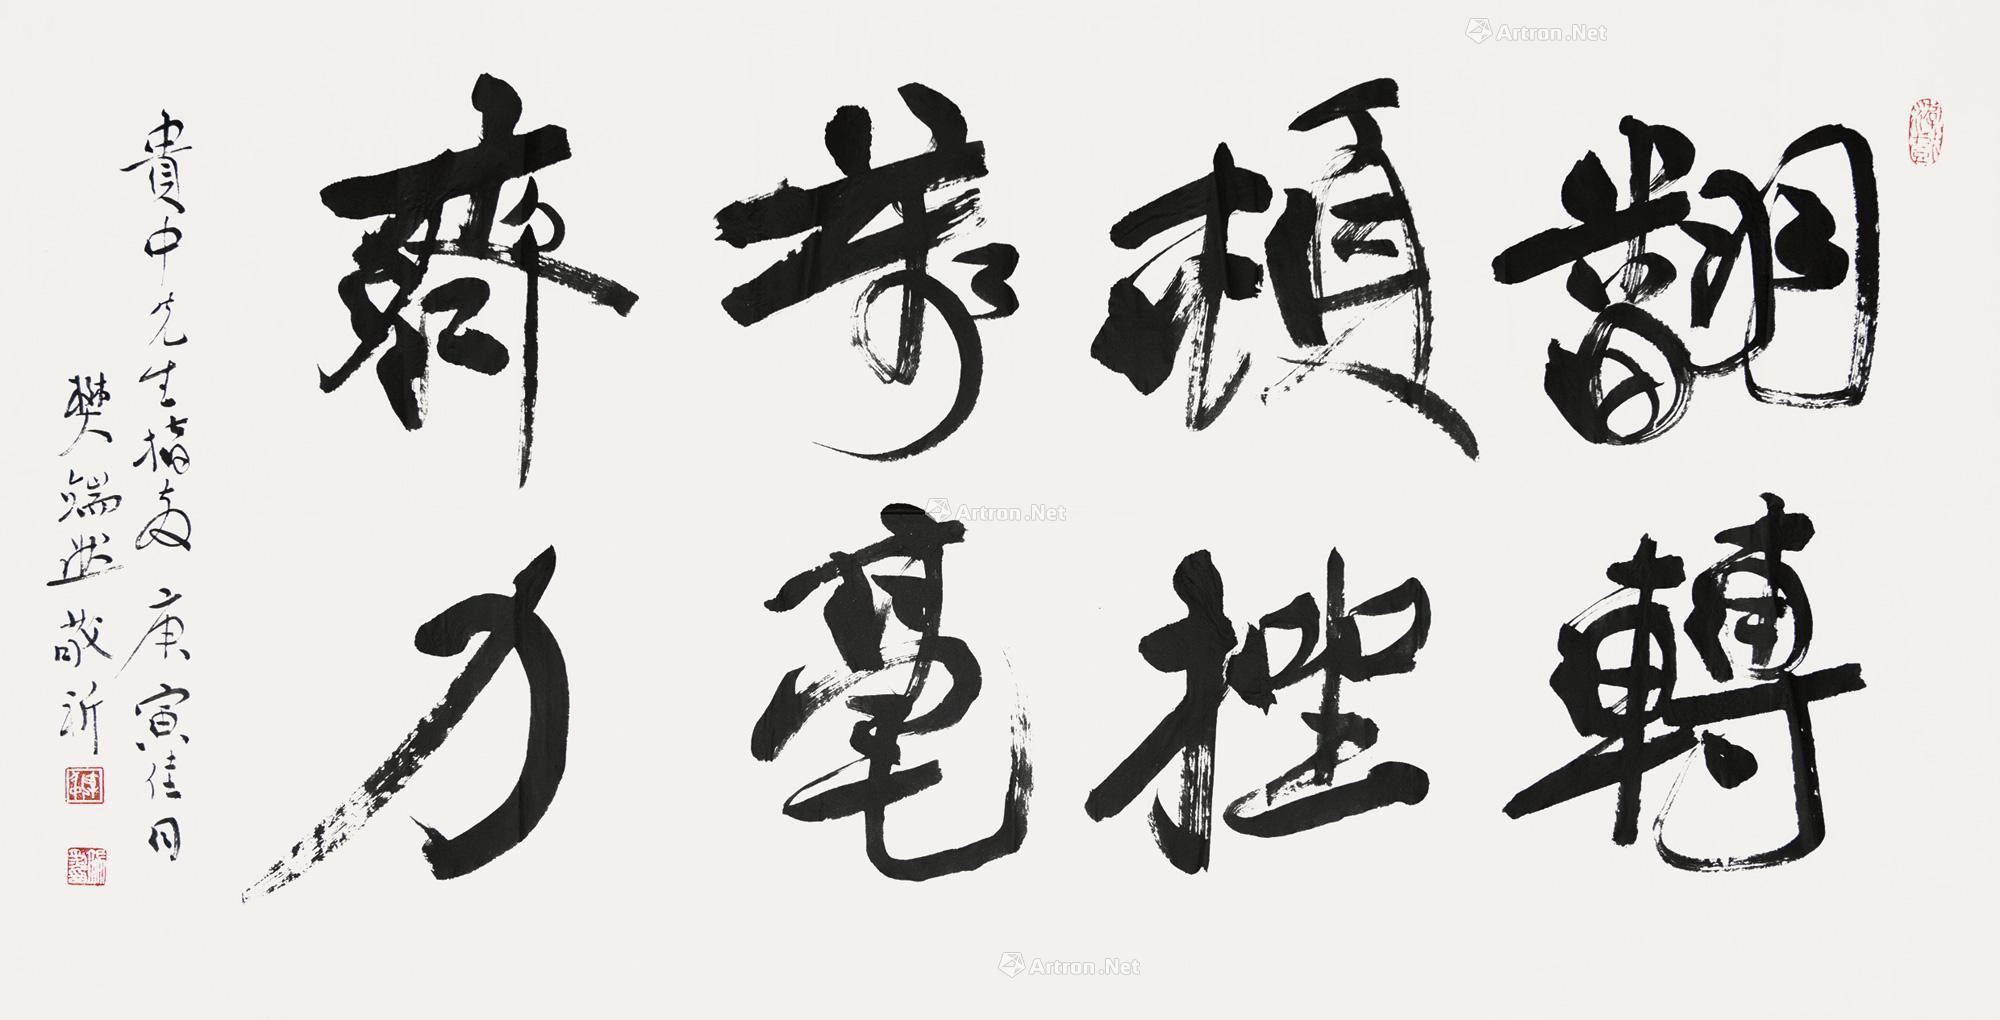 翻轉
頓挫
萬毫
齊力
貴中先生指教 庚寅佳月
樊 敬祈
Artron.Net
Artron.Net
Artron.Net